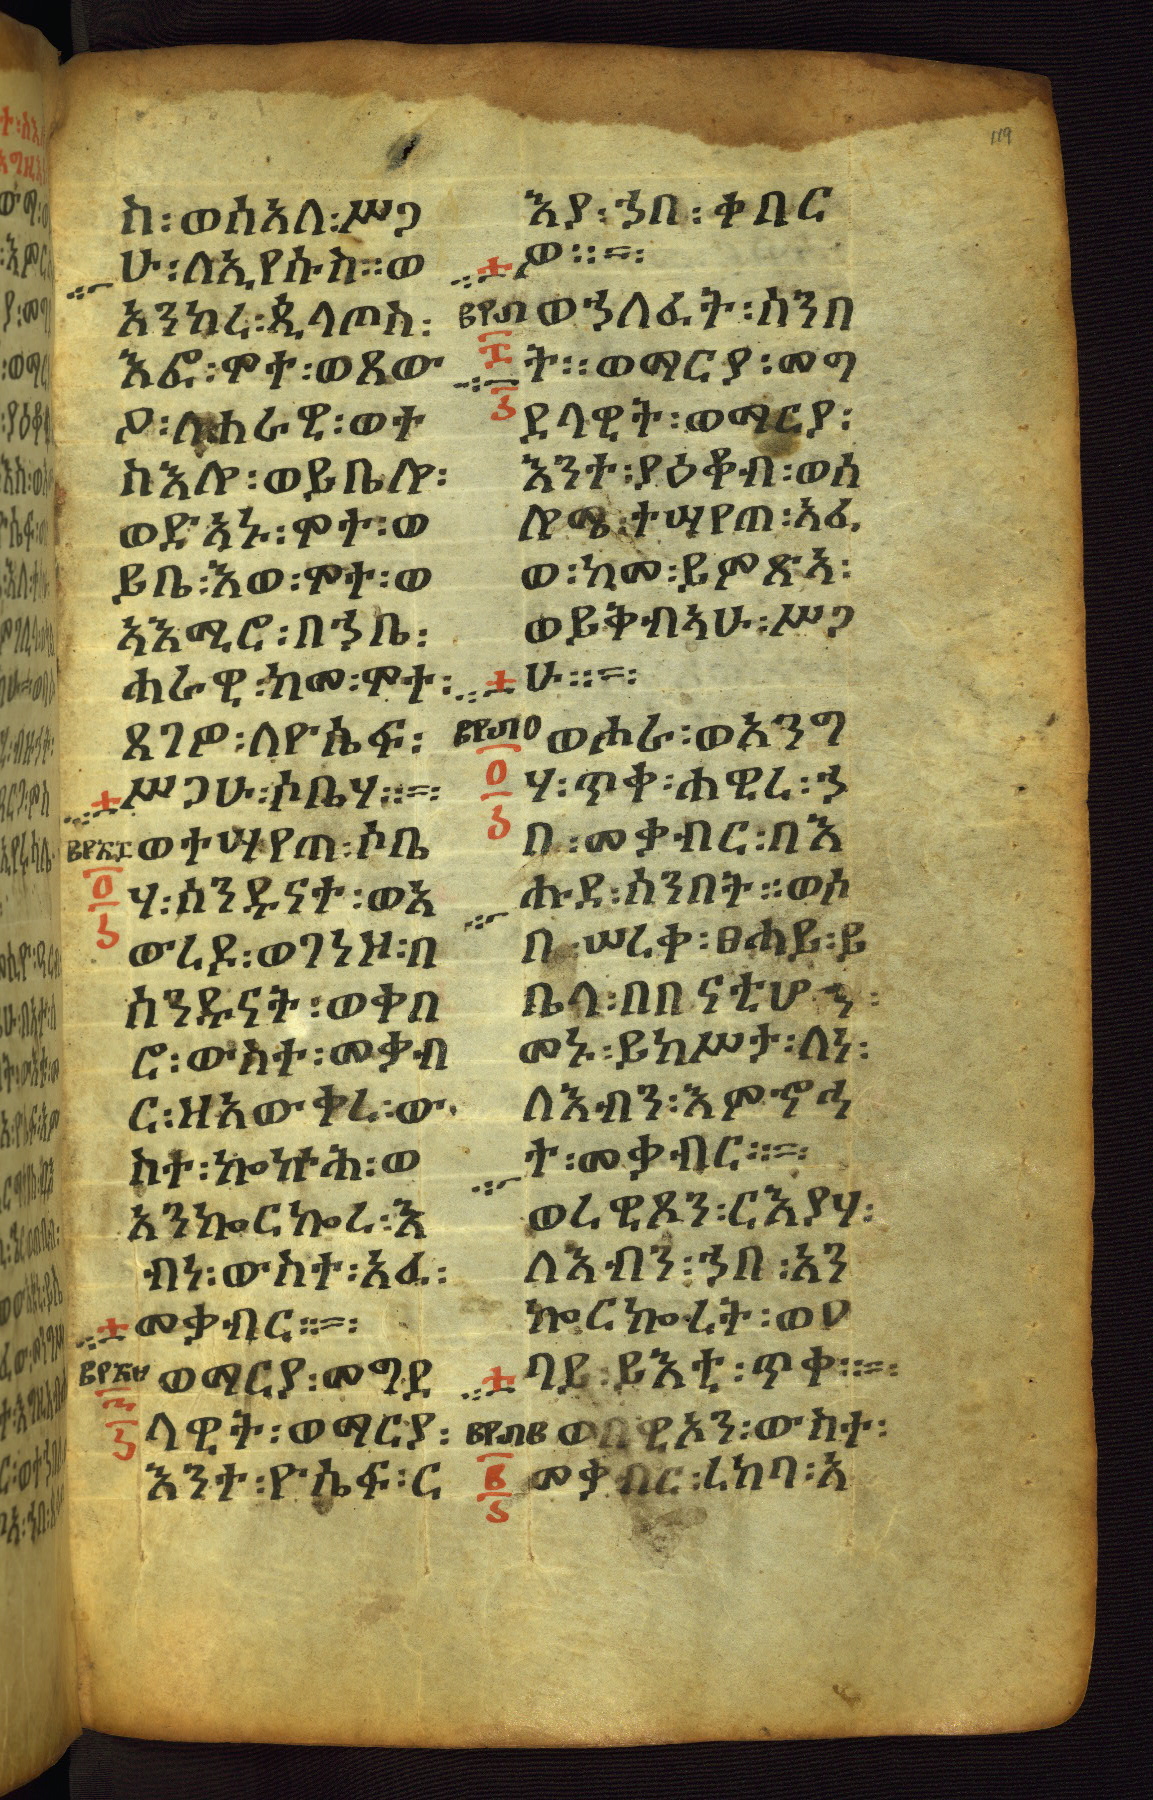 119
ስ፡ወሰአለ፡ሥጋ
ሁ፡ለኢየሱስ።ወ
አንከረ፡ጲላጦስ፡
እፎ፡ሞተ፡ወጸው
ዖ፡ለሐራዊ፡ወተ
ስእሎ፡ወይቤሎ፡
ወድአኑ፡ሞተ፡ወ
ይቤ፡እወ፡ሞተ፡ወ
አእሚሮ፡በኀቤ፡
ሐራዊ፡ከመ፡ሞተ፡
ጸገዎ፡ለዮሴፍ፡
ሥጋሁ፡ሶቤሃ።=፡
ወተሣየጠ፡ሶቤ
ሃ፡ሰንዱናተ፡ወአ
ውረደ፡ወገነዘ፡በ
ሰንዱናት፡ወቀበ
ሮ፡ውስተ፡መቃብ
ር፡ዘአውቀረ፡ው
ስተ፡ኰኵሕ፡ወ
አንኰርኰረ፡እ
ብነ፡ውስተ፡አፈ፡
መቃብር።=፡
ወማርያ፡መግደ
ላዊት፡ወማርያ፡
እንተ፡ዮሴፍ፡ር
እያ፡ኀበ፡ቀበር
ዎ።=፡
ወኀለፈት፡ሰንበ
ት።ወማርያ፡መግ
ደላዊት፡ወማርያ፡
እንተ፡ያዕቆብ፡ወሰ
ሎሜ፡ተሣየጠ፡አፈ
ወ፡ከመ፡ይምጽአ፡
ወይቅብአሁ፡ሥጋ
ሁ።=፡
ወሖራ፡ወአንግ
ሃ፡ጥቀ፡ሐዊረ፡ኀ
በ፡መቃብር፡በእ
ሑደ፡ሰንበት።ወሶ
በ፡ሠረቀ፡ፀሐይ፡ይ
ቤላ፡በበናቲሆን፡
መኑ፡ይከሥታ፡ለነ፡
ለእብን፡እምኖኅ
ተ፡መቃብር።=፡
ወረዊጾን፡ርእያሃ፡
ለእብን፡ኀበ፡አን
ኰርኰረት፡ወዐ
ባይ፡ይእቲ፡ጥቀ።=፡
ወበዊአን፡ውስተ፡
መቃብር፡ረከባ፡አ